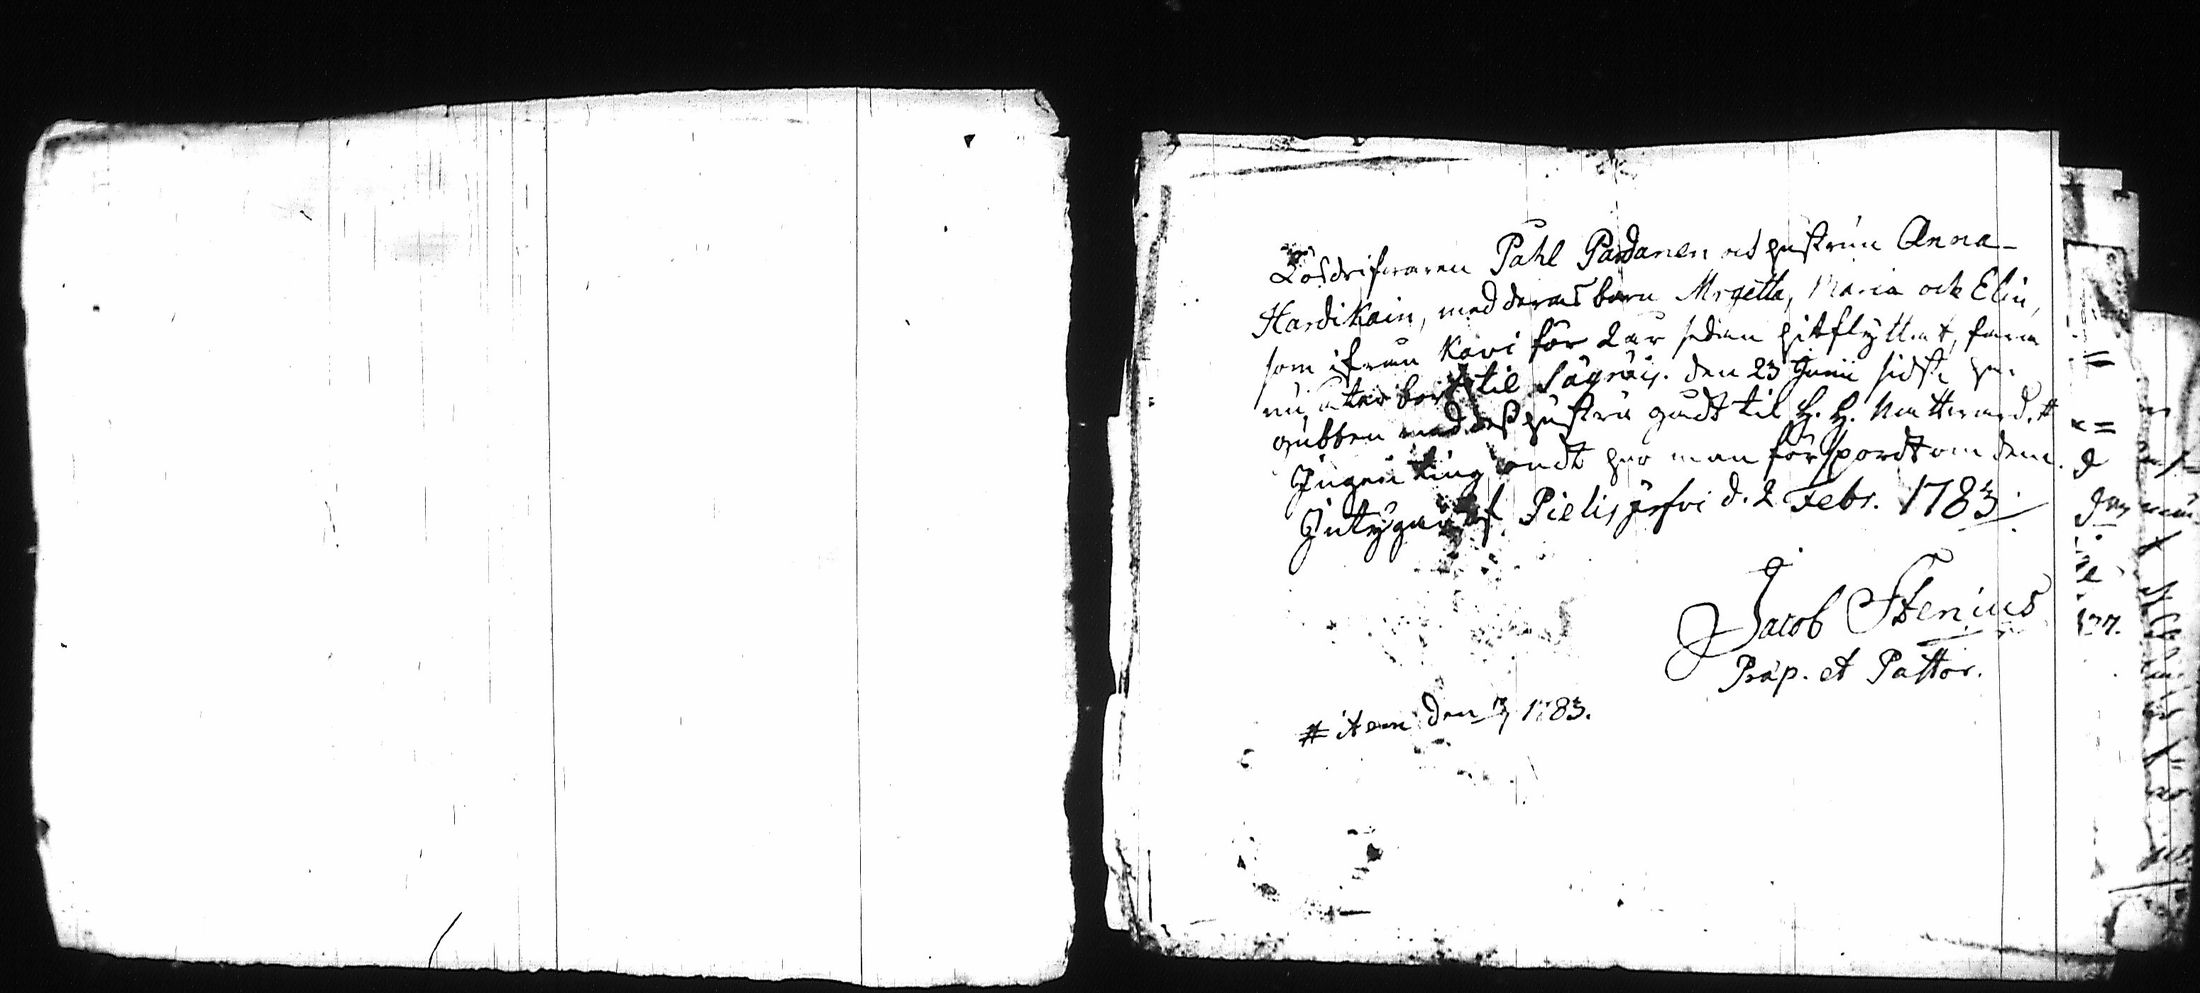 Lösdrifvaren Påhl Pardanen och hustrun Anna
Hardikain, med deras barn Mrgetta, Maria och Elin,
som ifrån Kavi för 2 år sedan hitflyttat, fara
nu åter bort til Sägnäs. den 23 Junii sidstl. har
gubben med dess hustru gådt til H. H. Nattward. #
Ingen ting ondt har man försport om dem.
Intygar af Pielisjerfvi d. 2 Febr. 1783.
Jacob Stenius
Præp. et Pastor.
# item den 1783.